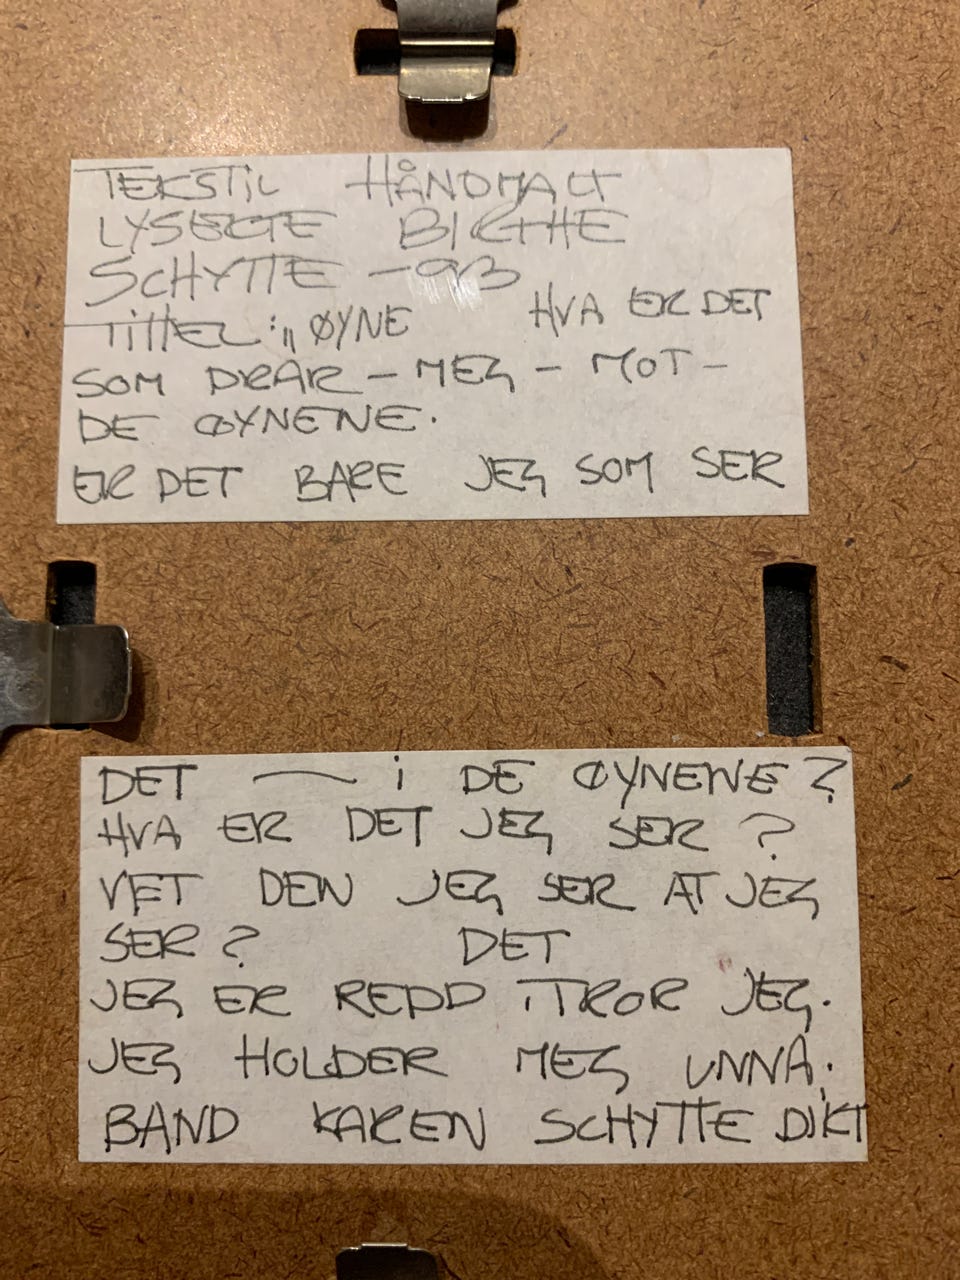 TEKSTIL HÅNDMALT
LYSEGTE BIRTHE
SCHYTTE -93
TITTEL: „ØYNE HVA ER DET
SOM DRAR - MEG - MOT -
DE ØYNENE.
ER DET BARE JEG SOM SER
DET — i DE ØYNENE?
HVA ER DET JEG SER?
VET DEN JEG SER AT JEG
SER? DET
JEG ER REDD iTROR JEG.
JEG HOLDER MEG UNNA.
BÅND KAREN SCHYTTE DIKT